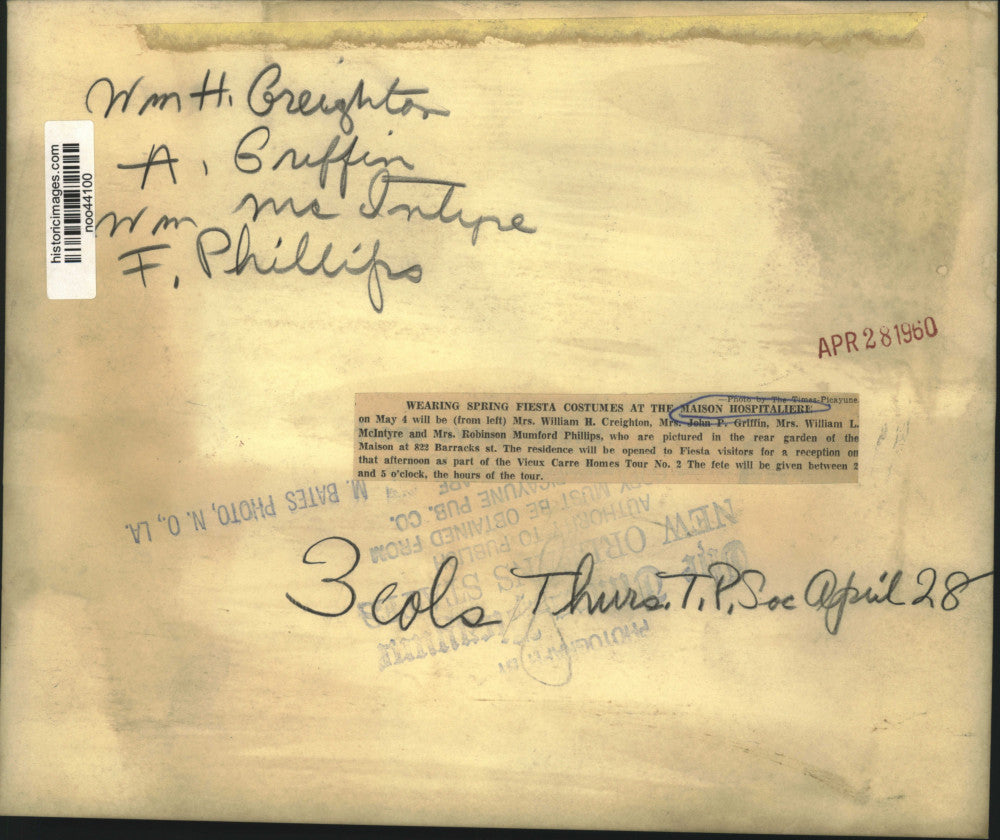 Wm H. Creighton
A. Griffin
Wm Mc Intyre
F. Phillips
historicimages.com
noo44100
APR 28 1960
—Photo by The Times-Picayune
WEARING SPRING FIESTA COSTUMES AT THE MAISON HOSPITALIERE
on May 4 will be (from left) Mrs. William H. Creighton, Mrs. John P. Griffin, Mrs. William L.
McIntyre and Mrs. Robinson Mumford Phillips, who are pictured in the rear garden of the
Maison at 822 Barracks st. The residence will be opened to Fiesta visitors for a reception on
that afternoon as part of the Vieux Carre Homes Tour No. 2 The fete will be given between 2
and 5 o'clock, the hours of the tour.
M. BATES PHOTO, N. O., LA.
3 cols Thurs. T.P. Soc April 28
PHOTOGRAPH BY
NEW ORLEANS STATES
TO PUBLISH
AUTHORITY
MUST BE OBTAINED FROM
PUB. CO.